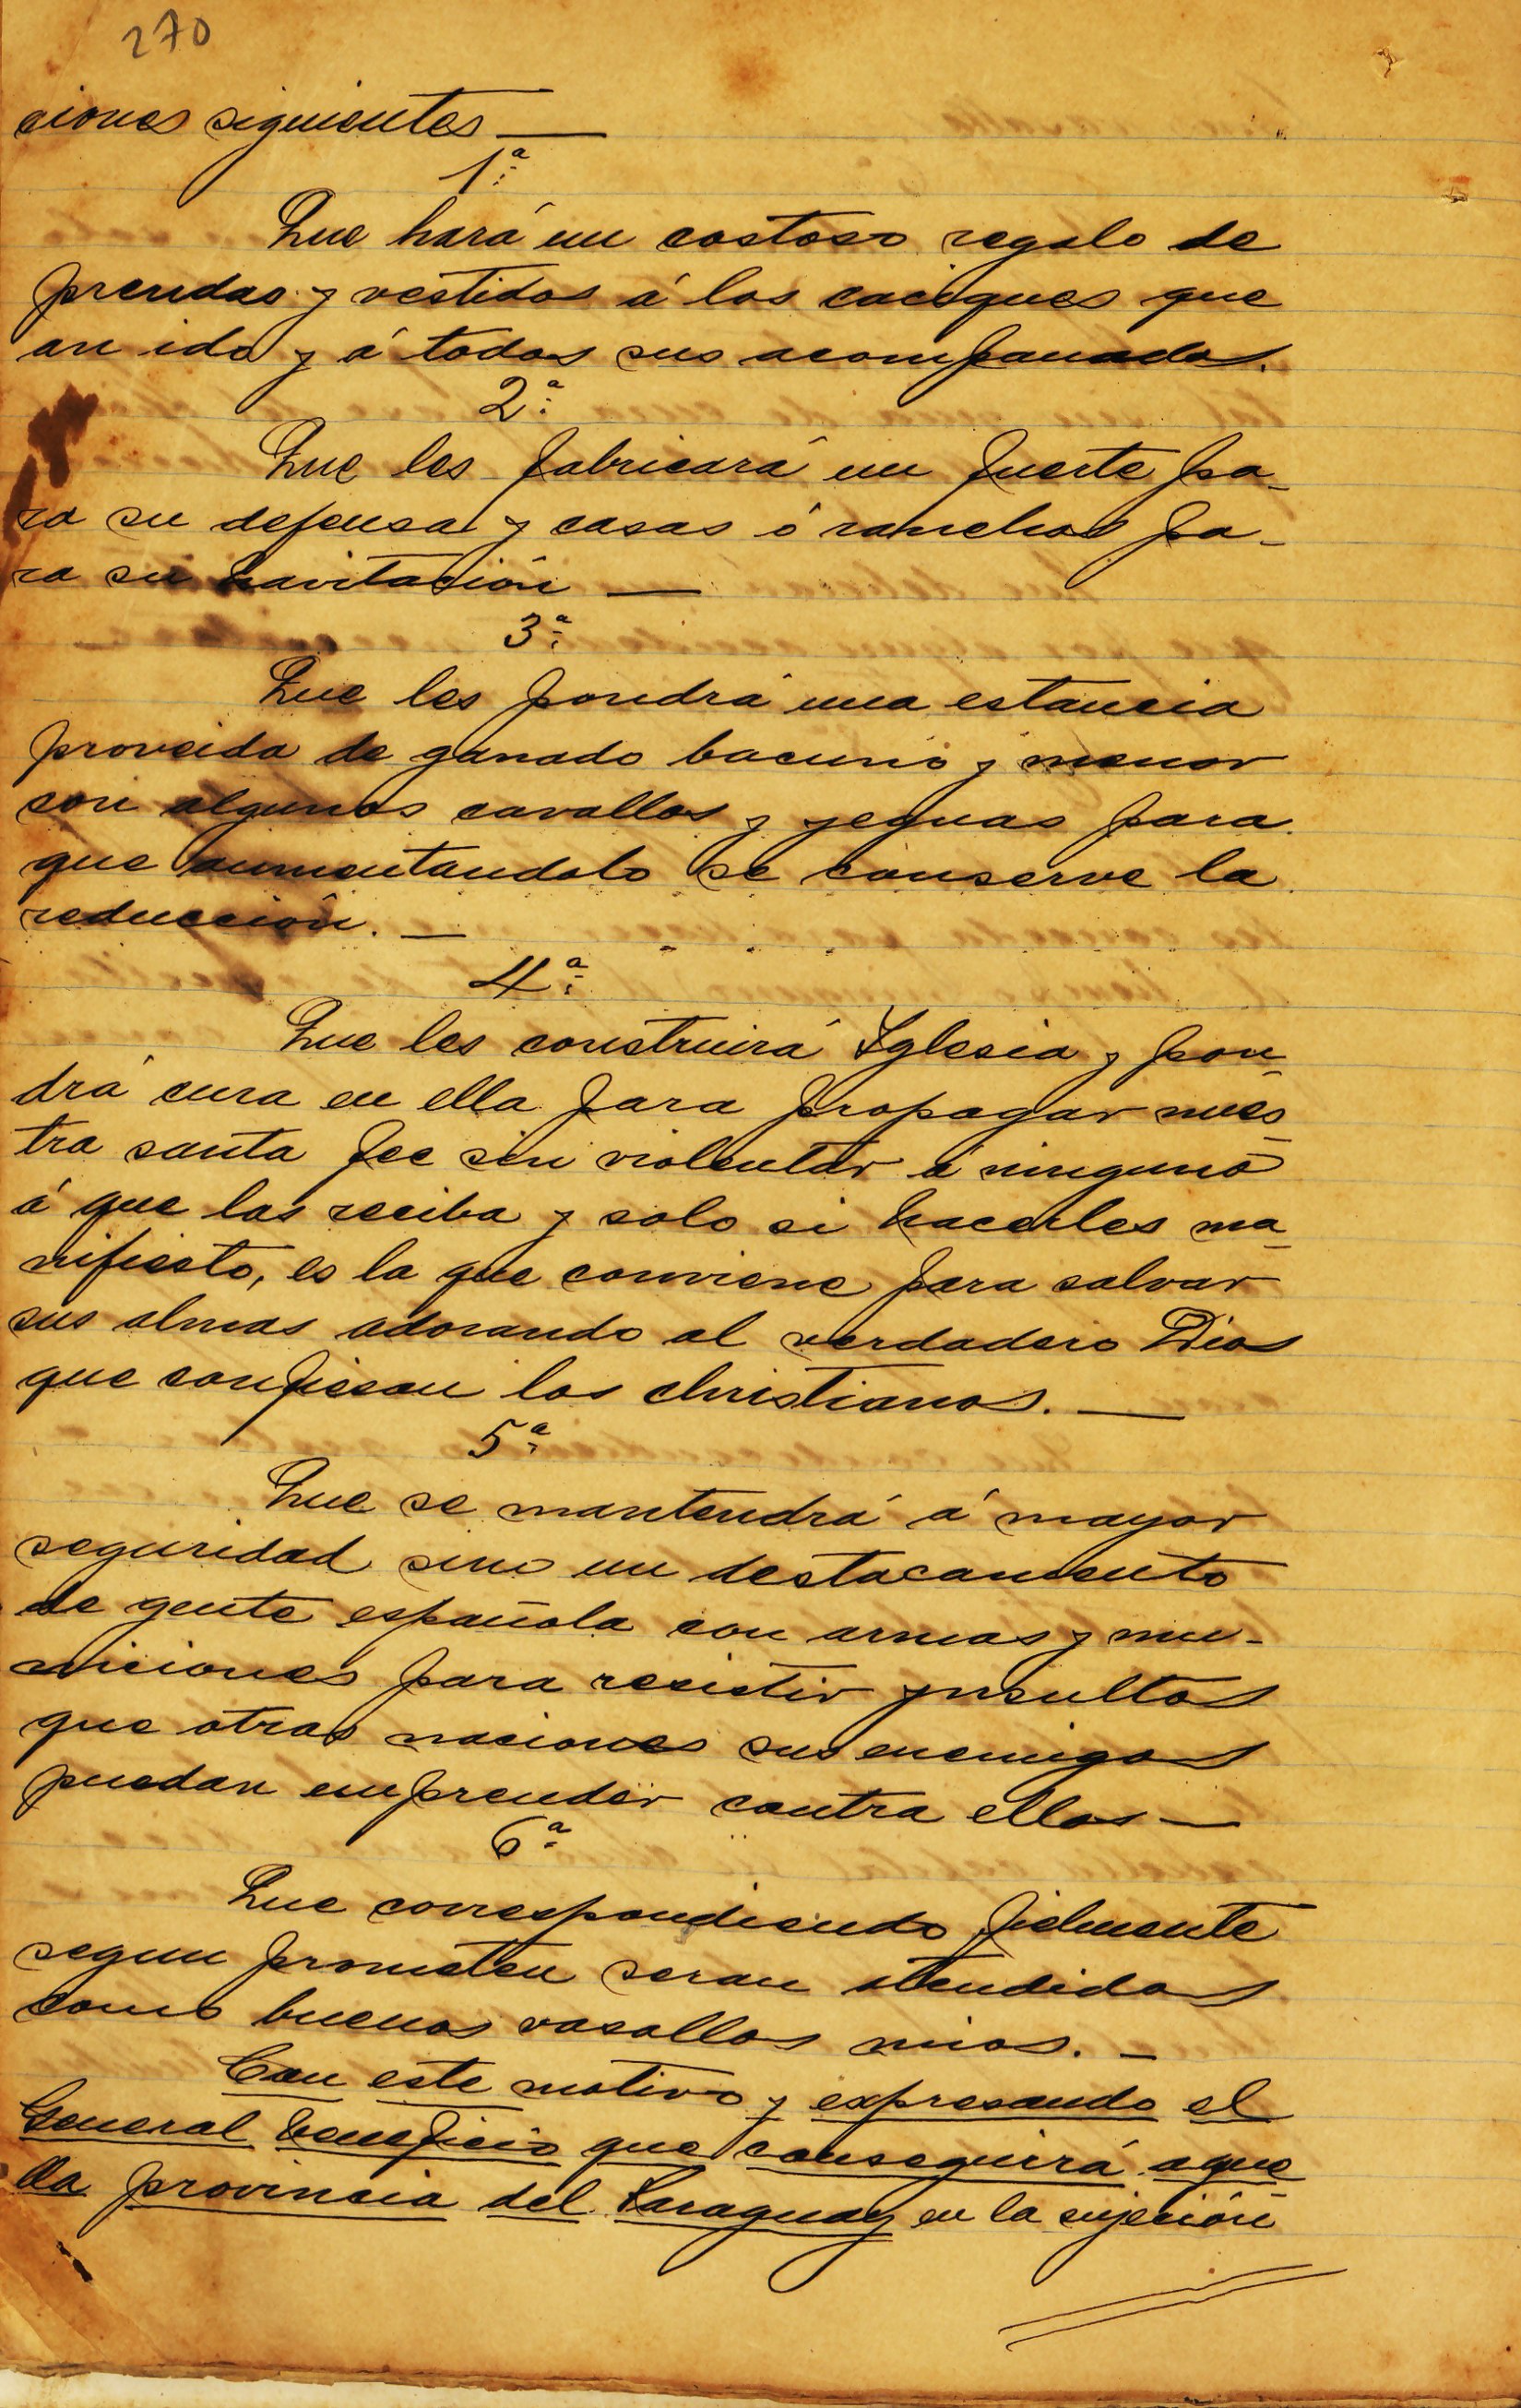 270
ciones siguientes —
1ª
Que hará un costoso regalo de
prendas y vestidos á los caciques que
an ido y á todos sus acompanados.
2ª
Que les fabricará un fuerte pa-
ra su defensa y casas ó ranchos pa-
ra su havitación —
3ª
Que les pondrá una estancia
proveida de ganado bacuno y menor
con algunos cavallos y yeguas para
que aumentandolo se conserve la
reducción. —
4ª
Que les construirá Iglesia y pon-
drá cura en ella para propagar nues-
tra santa fee sin violentar á ninguno
á que las reciba y solo si hacerles ma-
nifiesto, es la que conviene para salvar
sus almas adorando al verdadero Dios
que confiesan los christianos. —
5ª
Que se mantendrá á mayor
seguridad sino un destacamento
de gente española con armas y mu-
niciones para resistir ynsultos
que otras naciones sus enemigos
puedan emprender contra ellos —
6ª
Que correspondiendo fielmente
segun prometen seran atendidos
como buenos vasallos mios. —
Con este motivo y expresando el
General beneficio que conseguirá aque
lla provincia del Paraguay en la sujeción